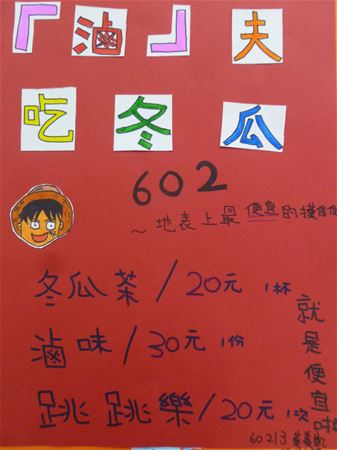 『滷』夫
吃冬瓜
602
~地表上最便宜的攤
冬瓜茶/20元 1杯
滷味/30元 1份
跳跳樂/20元 1次
就是便宜啦
60213